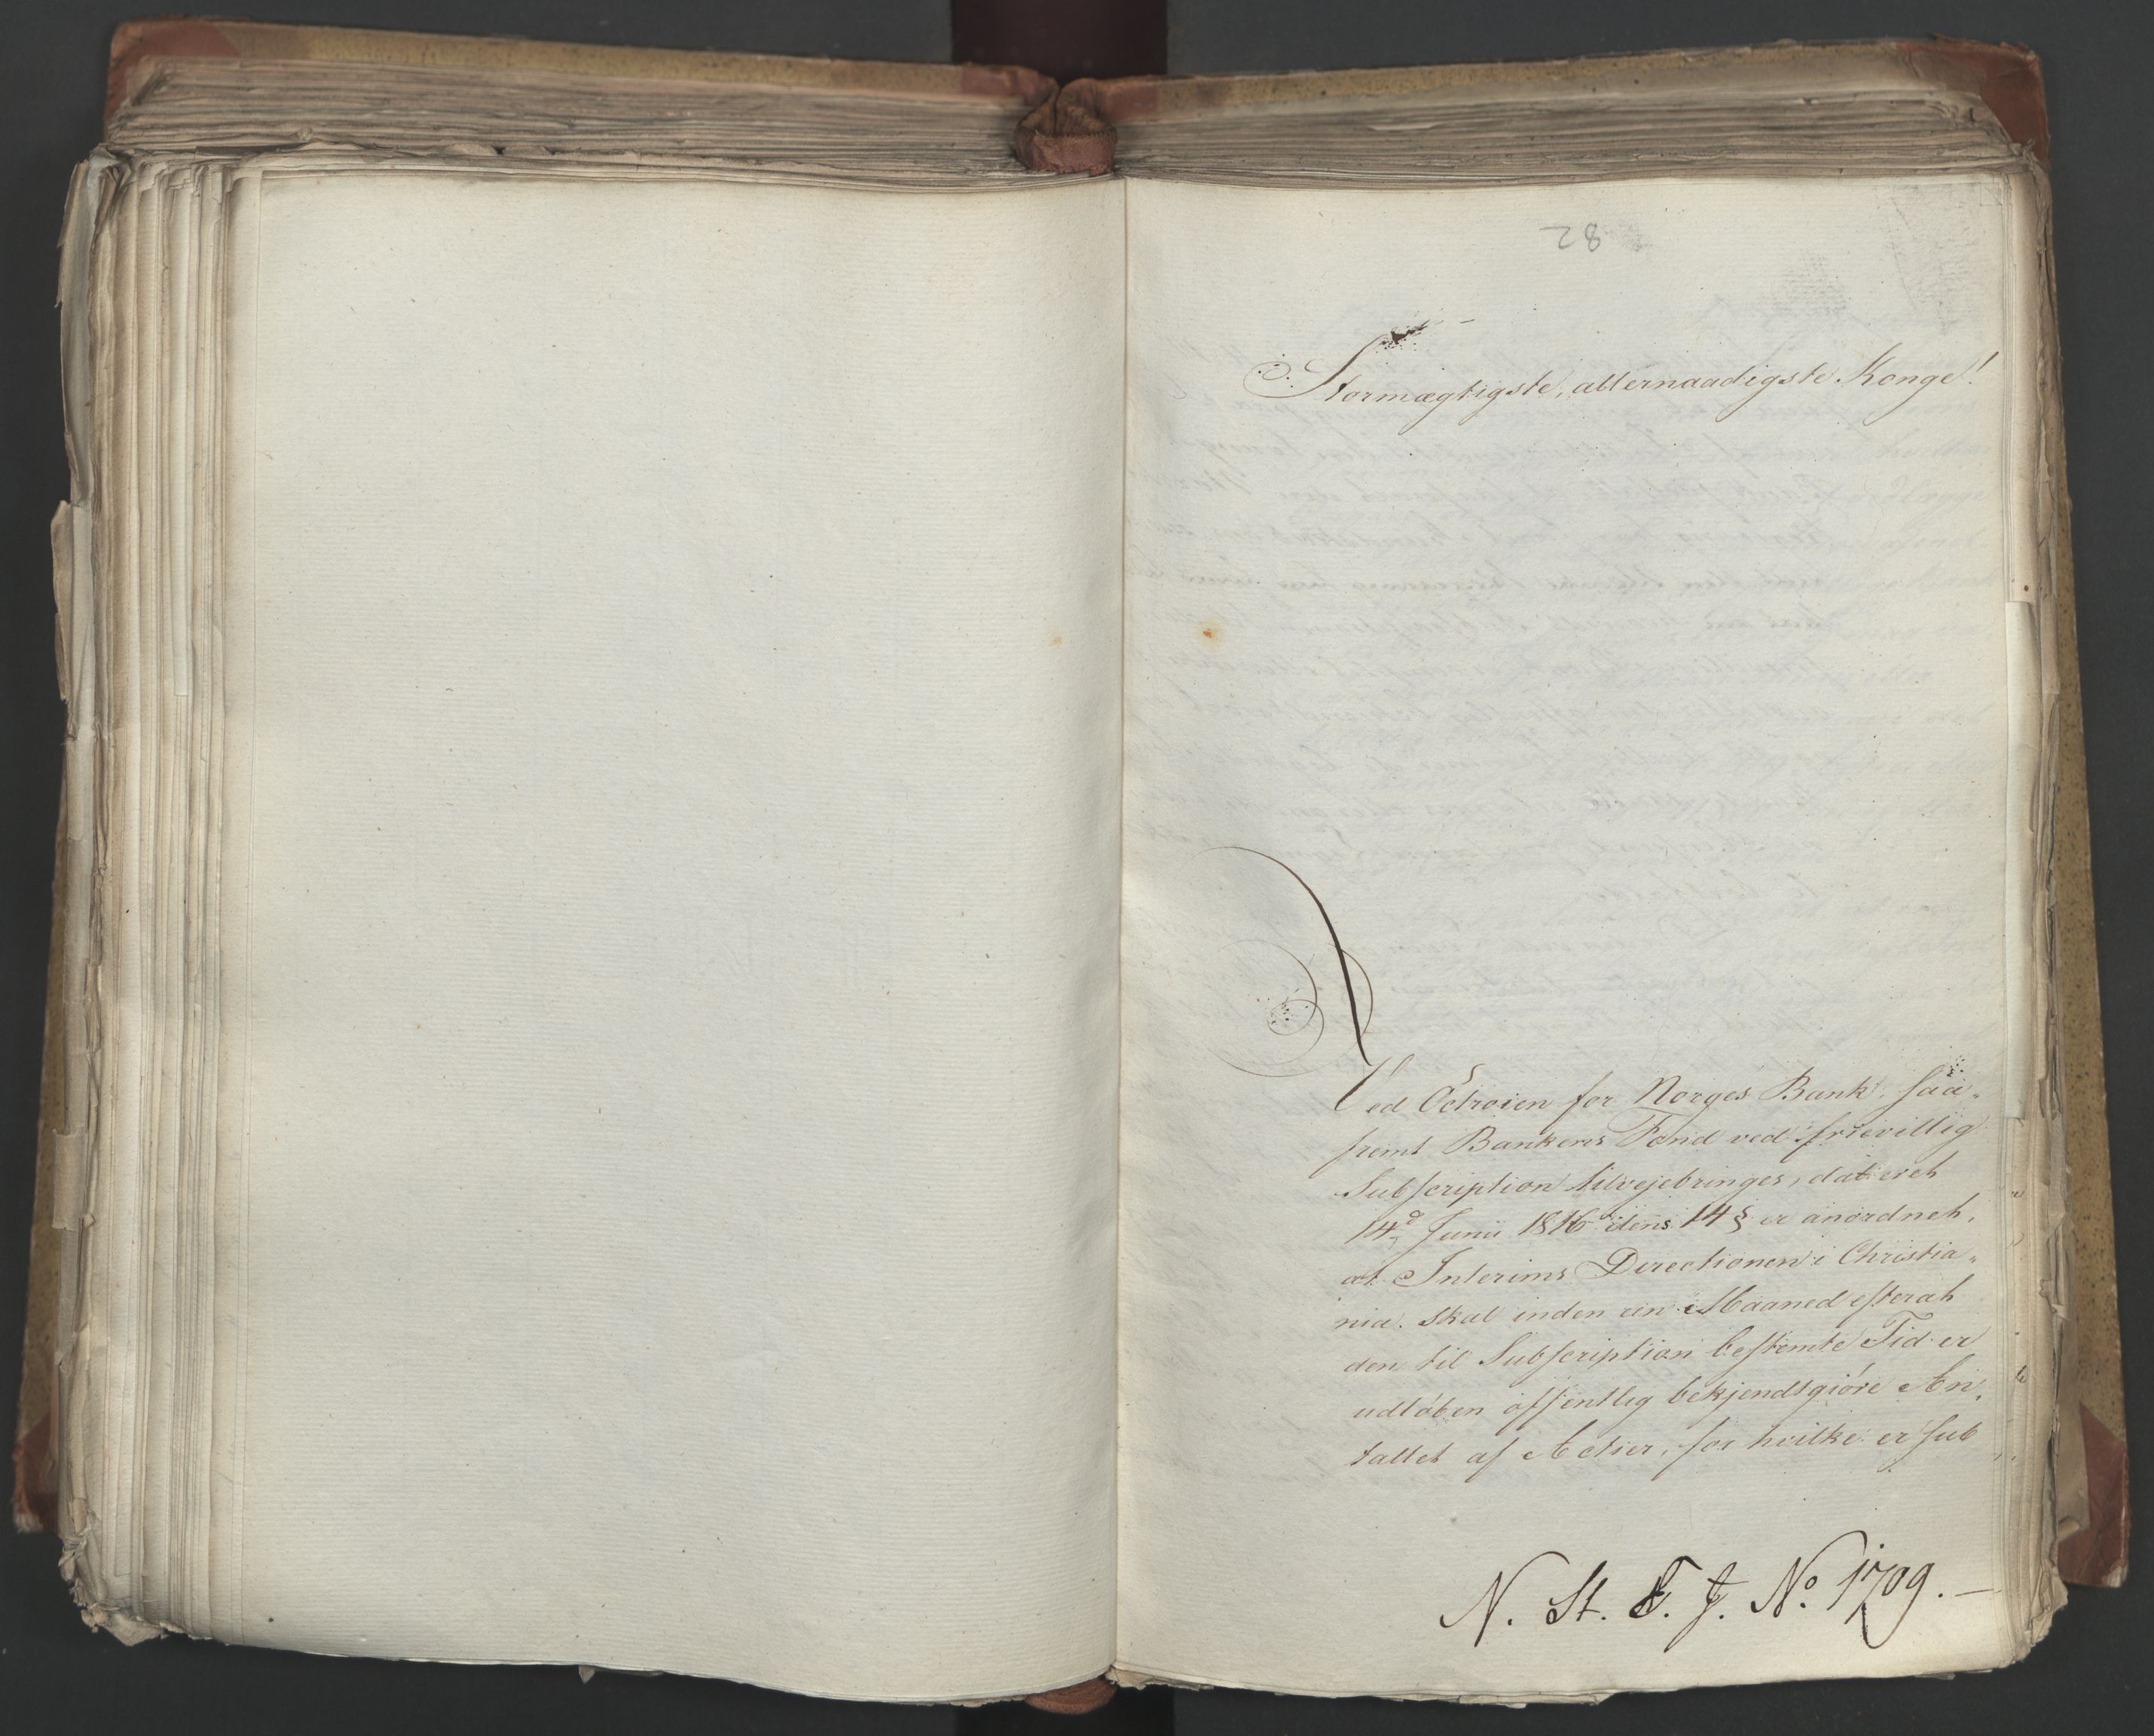 28
Stormægtigste, allernaadigste Konge!
Ved Octroien for Norges Bank, saa-
fremt Bankens Fond ved frievillig
Subscription tilvejebringes, dateret
14d Junii 1816 dens 14 § er anordnet,
at Interims Directionen i Christia-
nia skal inden een Maaned efterat
den til Subscription bestemte Tid er
udløben offentlig bekjendtgiøre An-
tallet af Actier, for hvilke er sub
N. St. S. J. No. 1709. —